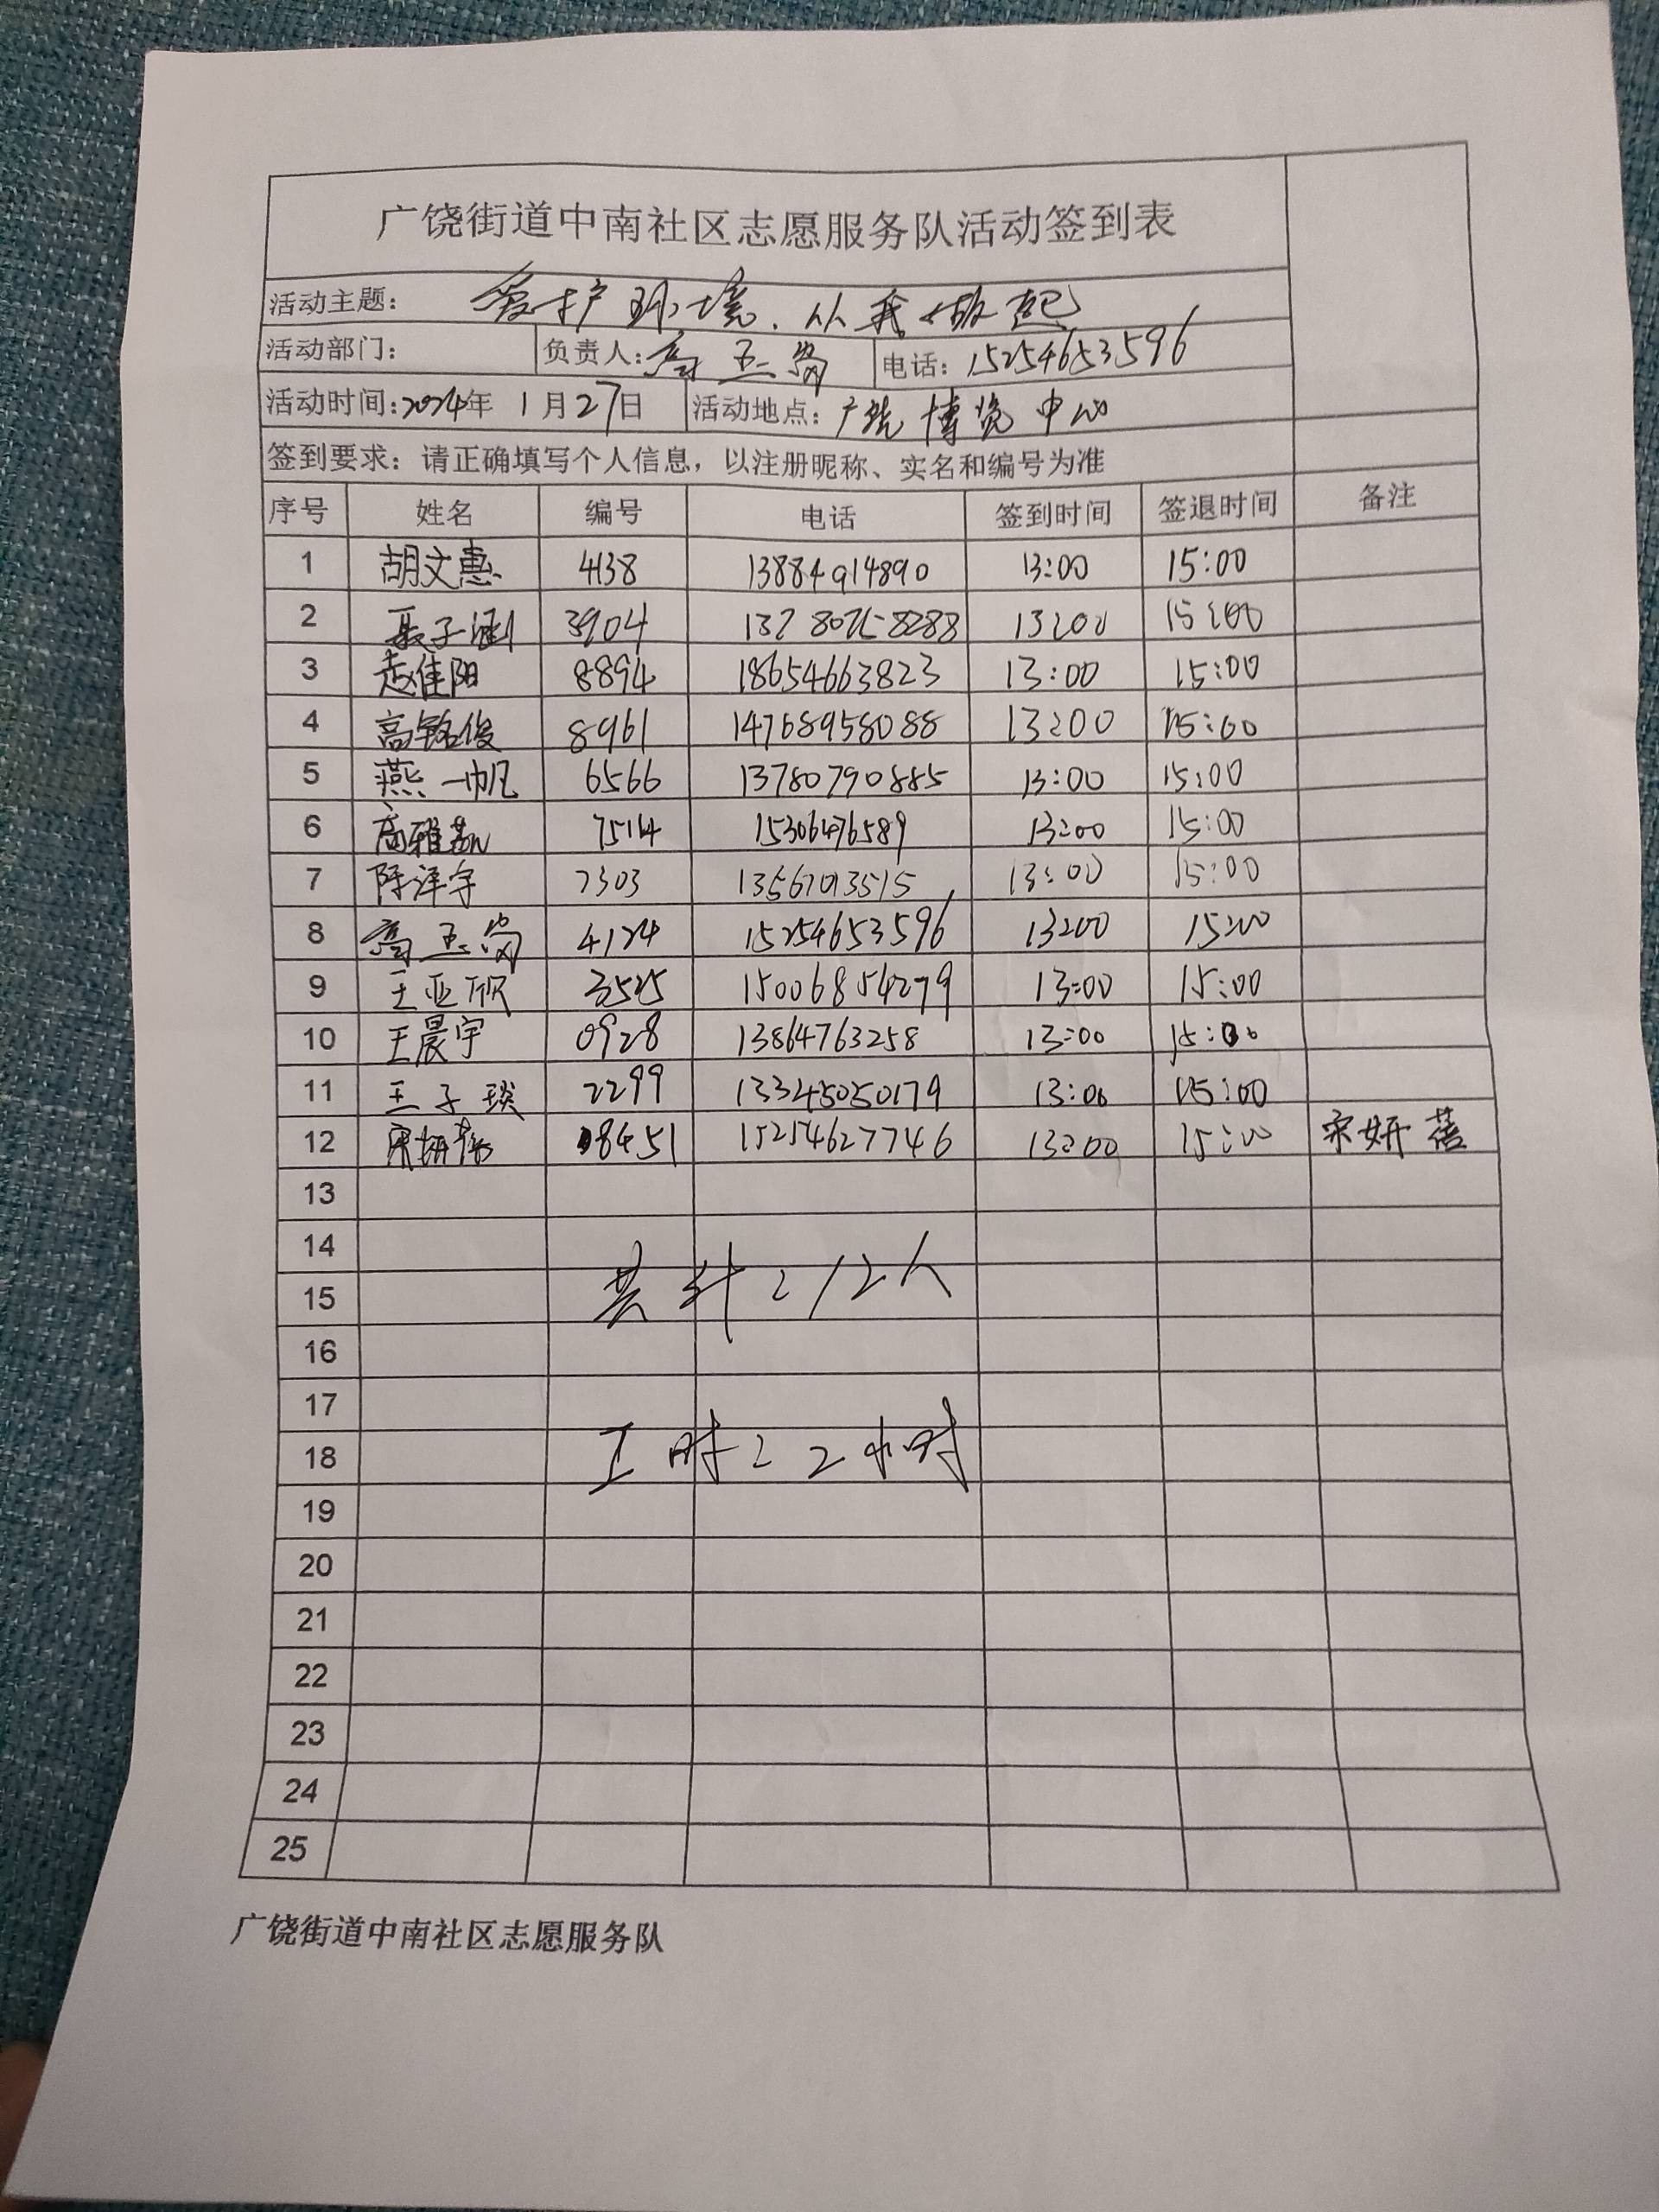 广饶街道中南社区志愿服务队活动签到表
活动主题： 爱护环境．从我做起
活动部门： 负责人：高玉岗 电话：15254653596
活动时间：2024年 1月27日 活动地点：广饶博览中心
签到要求：请正确填写个人信息，以注册昵称、实名和编号为准
序号 姓名 编号 电话 签到时间 签退时间 备注
1 胡文惠 4138 13884914890 13:00 15:00
2 聂子涵 3904 13:00 15:00
3 赵佳阳 8894 18654663823 13:00 15:00
4 高铭俊 8961 14768958088 13:00 15:00
5 燕一帆 6566 13780790885 13:00 15:00
6 7514 15306476589 13:00 15:00
7 陈泽宇 7303 13:00 15:00
8 高玉岗 4124 15254653596 13:00 15:00
9 王亚欣 3525 15006854279 13:00 15:00
10 王晨宇 0928 13864763258 13:00 15:00
11 王子琰 2299 13345050179 13:00 15:00
12 宋妍蓓 8451 15254627746 13:00 15:00 宋妍蓓
13
14
共计：12人
15
16
17
工时：2小时
18
19
20
21
22
23
24
25
广饶街道中南社区志愿服务队